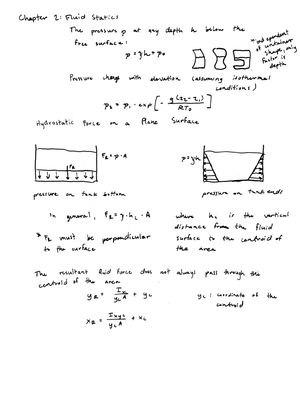 Chapter 2: Fluid Statics
The pressure p at any depth h below the
free surface:
p = γh + p₀
*independent
of container
shape, only
factor is
depth
Pressure change with elevation (assuming isothermal
conditions)
p₂ = p₁ · exp[ - g(z₂ - z₁) / RT₀ ]
Hydrostatic Force on a Plane Surface
F_R = p · A
F_R
p = γh
pressure on tank bottom
pressure on tank ends
In general, F_R = γ · h_c · A
where h_c is the vertical
distance from the fluid
surface to the centroid of
the area
* F_R must be perpendicular
to the surface
The resultant fluid force does not always pass through the
centroid of the area
y_R = I_x / y_c A + y_c
y_c : coordinate of the
centroid
x_R = I_xyc / y_c A + x_c